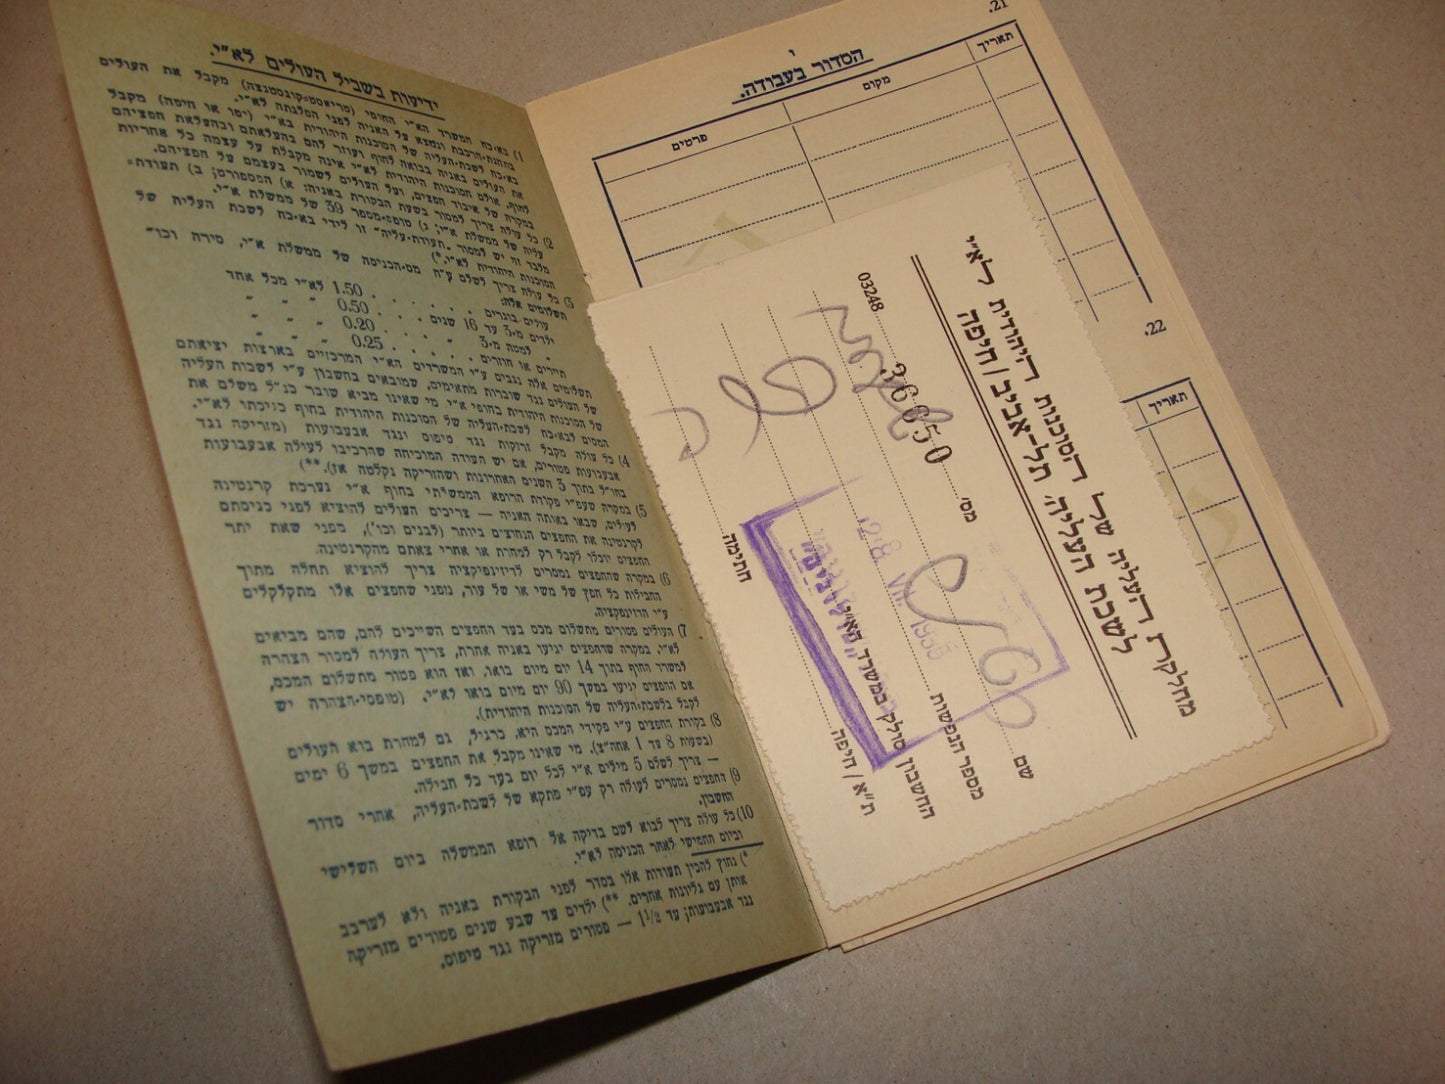 ידיעות בשביל העולים לא״י.
1) בא־כח המשרד הא״י החופי (טריאסט־קונסטנצה) מקבל את העולים
בתחנת־הרכבת ונמצא על האניה לפני הפלגתה לא״י.
בא־כח לשכת־העליה של הסוכנות היהודית בא״י (יפו או חיפה) מקבל
את העולים באניה בבואה לחוף ועוזר להם בהעלאתם ובהעלאת חפציהם
לחוף. אולם הסוכנות היהודית לא״י אינה מקבלת על עצמה כל אחריות
במקרה של איבוד חפצים, ועל העולים לשמור בעצמם על חפציהם.
2) כל עולה צריך למסור בשעת הבקורת באניה: א) הפספורט; ב) תעודת־
עליה של ממשלת א״י; ג) טופס־מספר 39 של ממשלת א״י.
מלבד זה יש למסור „תעודת־עליה״ זו לידי בא־כח לשכת העליה של
הסוכנות היהודית לא״י.*)
3) כל עולה צריך לשלם ע״ח מס־הכניסה של ממשלת א״י, סירה וכו׳
תשלומים אלה:
עולים בוגרים . . . . . . 1.50 לא״י מכל אחד
ילדים מ־3 עד 16 שנים . . . 0.50 ״ ״ ״
״ למטה מ־3 ״ . . . . 0.20 ״ ״ ״
תיירים או חוזרים . . . . . 0.25 ״ ״ ״
תשלומים אלה נגבים ע״י המשרדים הא״י המרכזיים בארצות יציאתם
של העולים נגד שוברות מתאימים, שמובאים בחשבון ע״י לשכות העליה
של הסוכנות היהודית בחופי א״י. מי שאינו מביא שובר כנ״ל משלם את
המסים לבא־כח לשכת־העליה של הסוכנות היהודית בחוף כניסתו לא״י.
4) כל עולה מקבל זריקות נגד טיפוס ונגד אבעבועות (מזריקה נגד
אבעבועות פטורים, אם יש תעודה המוכיחה שהרכיבו לעולה אבעבועות
בחו״ל בתוך 3 השנים האחרונות ושהזריקה נקלטה אז).**)
5) במקרה שעפ״י פקודת הרופא הממשלתי בחוף א״י נערכת קרנטינה
לעולים, שבאו באותה האניה — צריכים העולים להוציא לפני כניסתם
לקרנטינה את החפצים הנחוצים ביותר (לבנים וכו׳), מפני שאת יתר
החפצים יוכלו לקבל רק למחרת או אחרי צאתם מהקרנטינה.
6) במקרה שהחפצים נמסרים לדיזינפקציה צריך להוציא תחלה מתוך
החבילות כל חפץ של משי או של עור, מפני שחפצים אלו מתקלקלים
ע״י הדזינפקציה.
7) העולים פטורים מתשלום מכס בעד החפצים השייכים להם, שהם מביאים
לא״י. במקרה שהחפצים יגיעו באניה אחרת, צריך העולה למכור הצהרה
למשרד החוף בתוך 14 יום מיום בואו, ואז הוא פטור מתשלום המכס,
אם החפצים יגיעו במשך 90 יום מיום בואו לא״י. (טופסי־הצהרה יש
לקבל בלשכת־העליה של הסוכנות היהודית).
8) בקורת החפצים ע״י פקידי המכס היא, כרגיל, גם למחרת בוא העולים
(בשעות 8 עד 1 אחה״צ). מי שאינו מקבל את החפצים במשך 6 ימים
— צריך לשלם 5 מילים א״י לכל יום בעד כל חבילה.
9) החפצים נמסרים לעולה רק עפ״י פתקא של לשכת־העליה, אחרי סדור
החשבון.
10) כל עולה צריך לבוא לשם בדיקה אל רופא הממשלה ביום השלישי
וביום החמישי לאחר הכניסה לא״י.
*) נחוץ להכין תעודות אלו בסדר לפני הבקורת באניה ולא לערבב
אותן עם גליונות אחרים. **) ילדים עד שבע שנים פטורים מזריקה
נגד אבעבועות; עד 1½ — פטורים מזריקה נגד טיפוס.
21.
י
הסדור בעבודה.
תאריך
מקום
פרטים
22.
תאריך
מחלקת העליה של הסוכנות היהודית לא״י
לשכת העליה, תל־אביב/חיפה
03248
מס׳ 36650
שם
מספר הנפשות
החשבון סולק במשרד הא״י
ת״א / חיפה
חתימה
1935